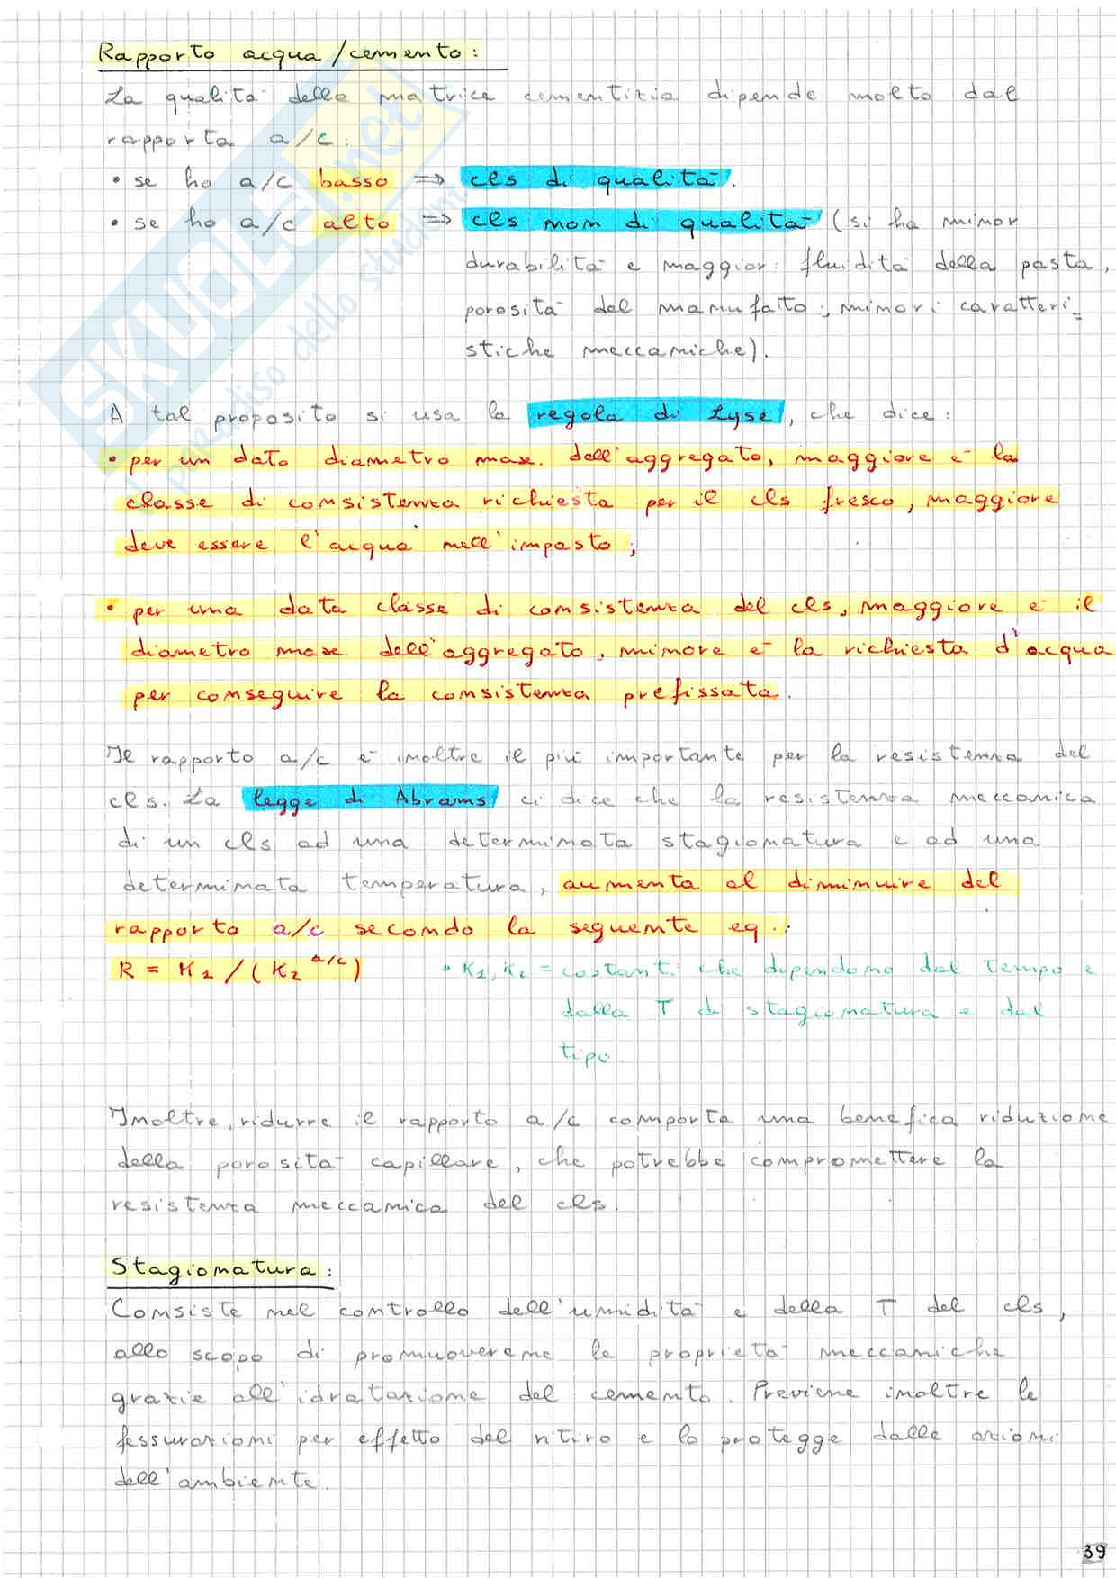 Rapporto acqua/cemento:
La qualità della matrice cementizia dipende molto dal
rapporto a/c:
• se ho a/c basso => cls di qualità.
• se ho a/c alto => cls non di qualità (si ha minor
durabilità e maggior: fluidità della pasta,
porosità del manufatto; minori caratteri=
stiche meccaniche).
A tal proposito si usa la regola di Lyse, che dice:
• per un dato diametro max. dell'aggregato, maggiore è la
classe di consistenza richiesta per il cls fresco, maggiore
deve essere l'acqua nell'impasto;
• per una data classe di consistenza del cls, maggiore è il
diametro max dell'aggregato, minore è la richiesta d'acqua
per conseguire la consistenza prefissata.
Il rapporto a/c è inoltre il più importante per la resistenza del
cls. La legge di Abrams ci dice che la resistenza meccanica
di un cls ad una determinata stagionatura e ad una
determinata temperatura, aumenta al diminuire del
rapporto a/c secondo la seguente eq.:
R = K1 / (K2^a/c) • K1, K2 = costanti che dipendono dal tempo e
dalla T di stagionatura e dal
tipo
Inoltre, ridurre il rapporto a/c comporta una benefica riduzione
della porosità capillare, che potrebbe compromettere la
resistenza meccanica del cls.
Stagionatura:
Consiste nel controllo dell'umidità e della T del cls,
allo scopo di promuoverne le proprietà meccaniche
grazie all'idratazione del cemento. Previene inoltre le
fessurazioni per effetto del ritiro e lo protegge dalle azioni
dell'ambiente.
39
SKUOLA.net
paradiso dello studente